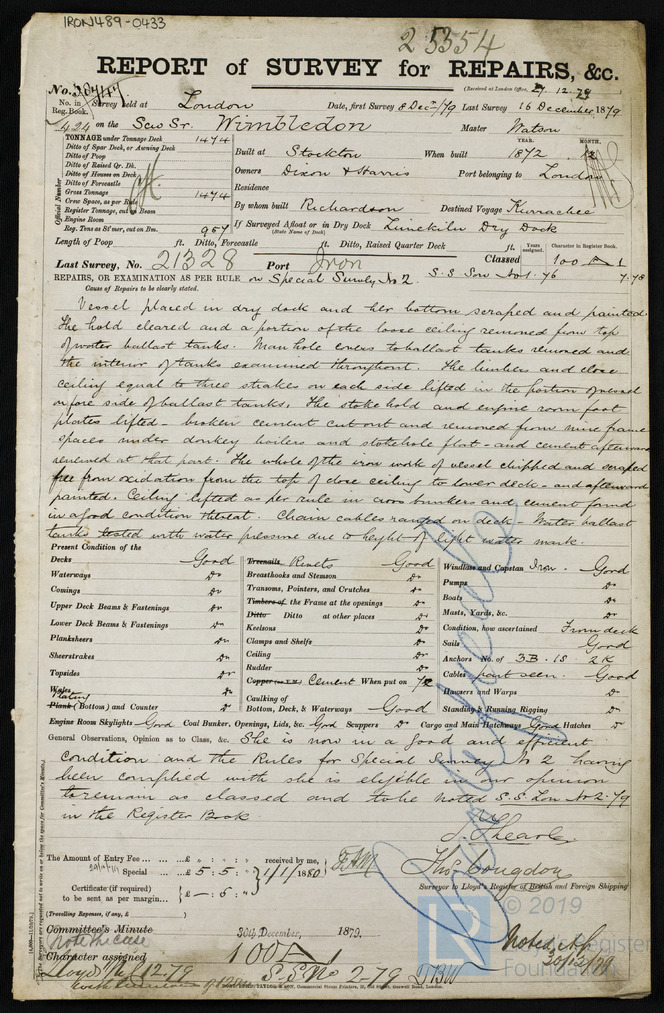 IRON489-0433
25354
REPORT of SURVEY for REPAIRS, &c.
(Received at London Office, 29.12.79
No.
No. in Reg. Book. Survey held at London Date, first Survey 8 Decr/79 Last Survey 16 December 1879
424 on the Scw Sr. Wimbledon Master Watson
TONNAGE under Tonnage Deck 1474
Ditto of Spar Deck, or Awning Deck
Ditto of Poop
Ditto of Raised Qr. Dk.
Ditto of Houses on Deck
Ditto of Forecastle
Gross Tonnage 1474
Crew Space, as per Rule
Register Tonnage, cut on Beam
Engine Room
Reg. Tons as Strmr, cut on Bm. 957
Official Number
YEAR. MONTH.
Built at Stockton When built 1872 12
Owners Dixon & Harris Port belonging to London
Residence
By whom built Richardson Destined Voyage Kurrachee
If Surveyed Afloat or in Dry Dock Limekiln Dry Dock
(State Name of Dock)
Length of Poop ft. Ditto, Forecastle ft. Ditto, Raised Quarter Deck ft. Years assigned. Character in Register Book.
Last Survey, No. 21328 Port Iron Classed 100 A 1
REPAIRS, OR EXAMINATION AS PER RULE on Special Survey No 2 S.S Lon No 1. 76 7.78
Cause of Repairs to be clearly stated.
Vessel placed in dry dock and her bottom scraped and painted.
The hold cleared and a portion of the loose ceiling removed from top
of water ballast tanks. Man hole covers to ballast tanks removed and
the interior of tanks examined throughout. The limbers and close
ceiling equal to three strakes on each side lifted in the portion of vessel
on fore side of ballast tanks. The stoke hold and engine room foot
plates lifted - broken cement cut out and removed from nine frame
spaces under donkey boilers and stokehole flat - and cement afterward
renewed at that part. The whole of the iron work of vessel chipped and scraped
free from oxidation from the top of close ceiling to lower deck - and afterward
painted. Ceiling lifted as per rule in cross bunkers and cement found
in a good condition thereat. Chain cables ranged on deck - Water ballast
tanks tested with water pressure due to height of light water mark.
Present Condition of the
Decks Good
Waterways Do
Comings Do
Upper Deck Beams & Fastenings Do
Lower Deck Beams & Fastenings Do
Planksheers Do
Sheerstrakes Do
Topsides Do
Wales
Plating
Plank (Bottom) and Counter Do
Treenails Rivets Good
Breasthooks and Stemson Do
Transoms, Pointers, and Crutches Do
Timbers of the Frame at the openings Do
Ditto Ditto at other places Do
Keelsons Do
Clamps and Shelfs Do
Ceiling Do
Rudder Do
Copper Cement When put on 72
Caulking of
Bottom, Deck, & Waterways Good
Windlass and Capstan Iron - Good
Pumps Do
Boats Do
Masts, Yards, &c. Do
Condition, how ascertained From deck
Sails Good
Anchors No. of 3B. 1S 2K
Cables part seen. Good
Hawsers and Warps Do
Standing & Running Rigging Do
Engine Room Skylights Good Coal Bunker, Openings, Lids, &c. Good Scuppers Do Cargo and Main Hatchways Good Hatches Do
General Observations, Opinion as to Class, &c. She is now in a good and efficient
condition and the Rules for Special Survey No 2 having
been complied with she is eligible in our opinion
to remain as classed and to be noted S.S. Lon No 2-79
in the Register Book.
The Amount of Entry Fee ... £ " : " : " received by me,
Special £ 5 : 5 : " 1/1/1880
Certificate (if required) £ - : 5 : "
to be sent as per margin
(Travelling Expenses, if any, £ )
Thos Congdon
Surveyor to Lloyd's Register of British and Foreign Shipping
Committee's Minute 30th December, 1879.
Note the case
Character assigned 100 A 1
Lloyds 12-79 S.S No 2-79
Noted
30/12/79
© 2019
LR
Lloyd's Register
Foundation